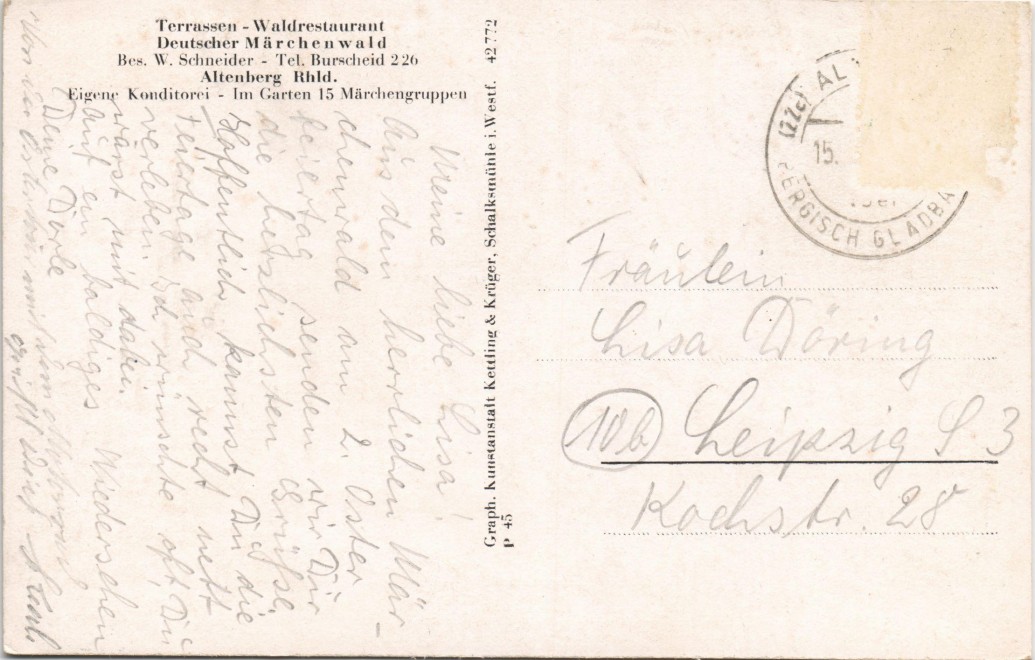 Terrassen - Waldrestaurant
Deutscher Märchenwald
Bes. W. Schneider - Tel. Burscheid 226
Altenberg Rhld.
Eigene Konditorei - Im Garten 15 Märchengruppen
Meine liebe Lisa!
Aus dem herrlichen Mär-
chenwald am 2. Oster
feiertag senden wir Dir
die herzlichsten Grüße.
Hoffentlich kannst Du die
Feiertage auch recht nett
verleben. Ich wünschte oft, Du
wärst mit dabei.
Auf ein baldiges Wiedersehen
Deine Dörle
Graph. Kunstanstalt Kettling & Krüger, Schalksmühle i. Westf. 42 772
P 45
(22c) AL
15.
BERGISCH GLADBA
Fräulein
Lisa Döring
10b Leipzig S 3
Kochstr. 28